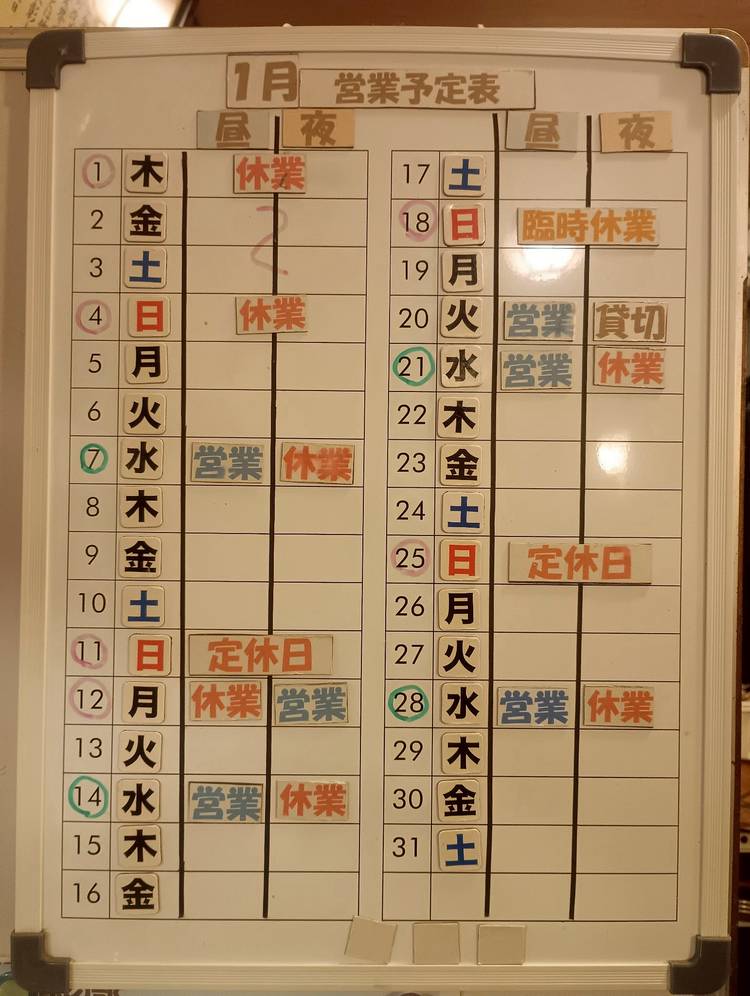 1月 営業予定表
昼 夜
1 木 休業
2 金
3 土
4 日 休業
5 月
6 火
7 水 営業 休業
8 木
9 金
10 土
11 日 定休日
12 月 休業 営業
13 火
14 水 営業 休業
15 木
16 金
昼 夜
17 土
18 日 臨時休業
19 月
20 火 営業 貸切
21 水 営業 休業
22 木
23 金
24 土
25 日 定休日
26 月
27 火
28 水 営業 休業
29 木
30 金
31 土